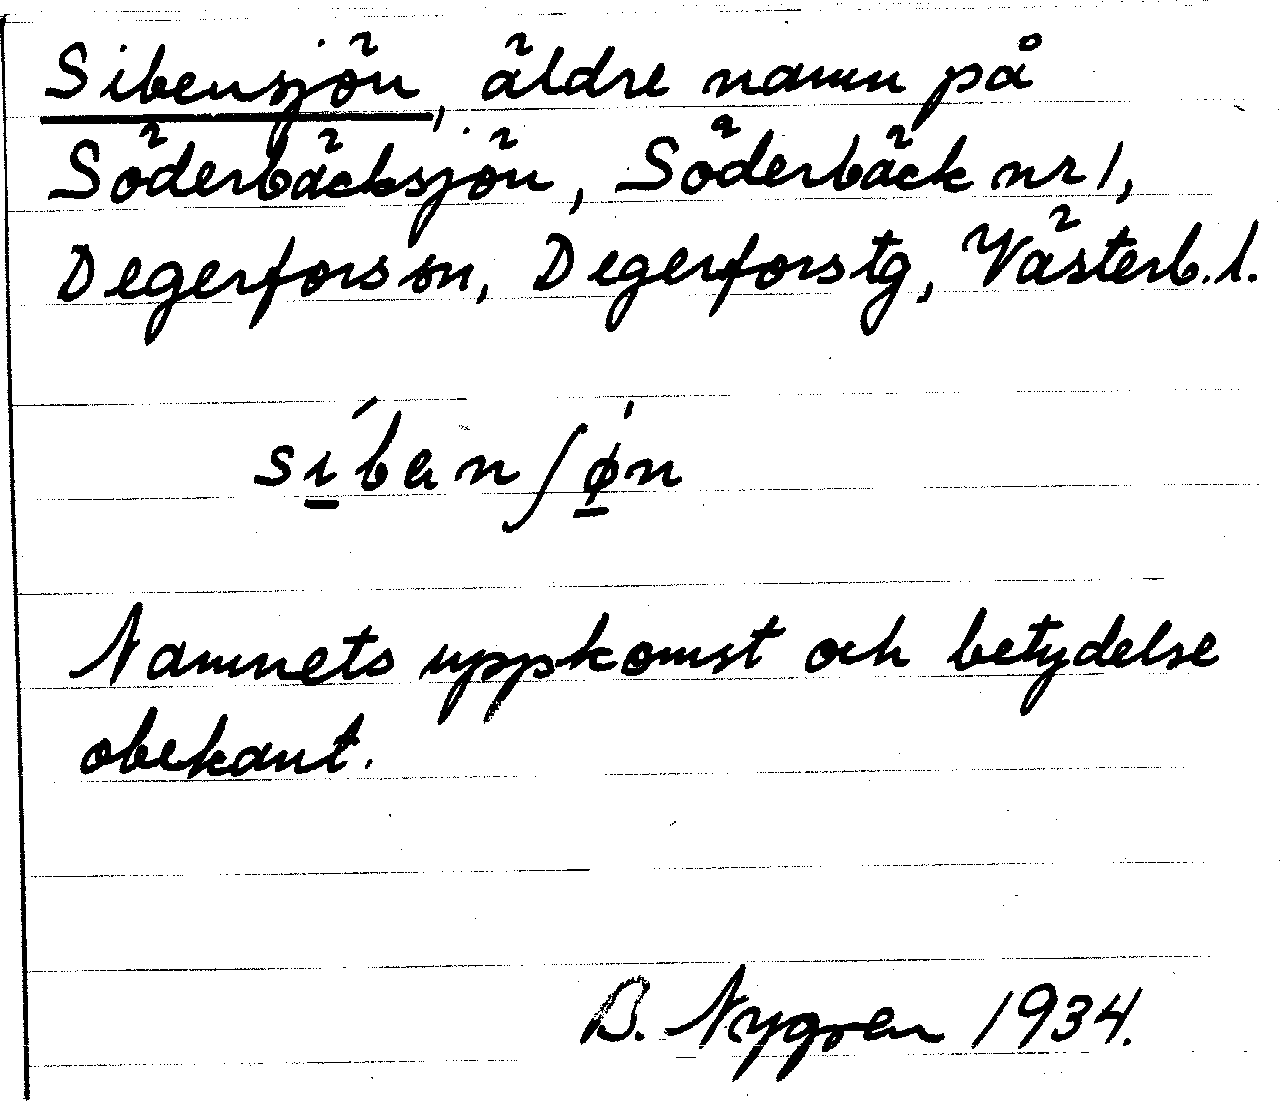 Sibensjön, äldre namn på
Söderbäcksjön, Söderbäck nr 1,
Degerfors sn, Degerfors tg, Västerb. l.
síbɑnʃø̀n
Namnets uppkomst och betydelse
obekant.
B. Nygren 1934.